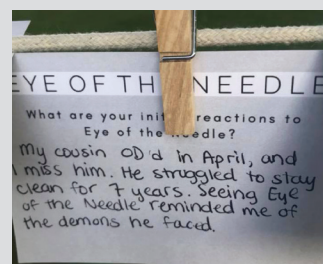 EYE OF TH NEEDLE
What are your init reactions to
Eye of the eedle?
My cousin OD'd in April, and
I miss him. He struggled to stay
clean for 7 years. Seeing Eye
of the Needle reminded me of
the demons he faced.